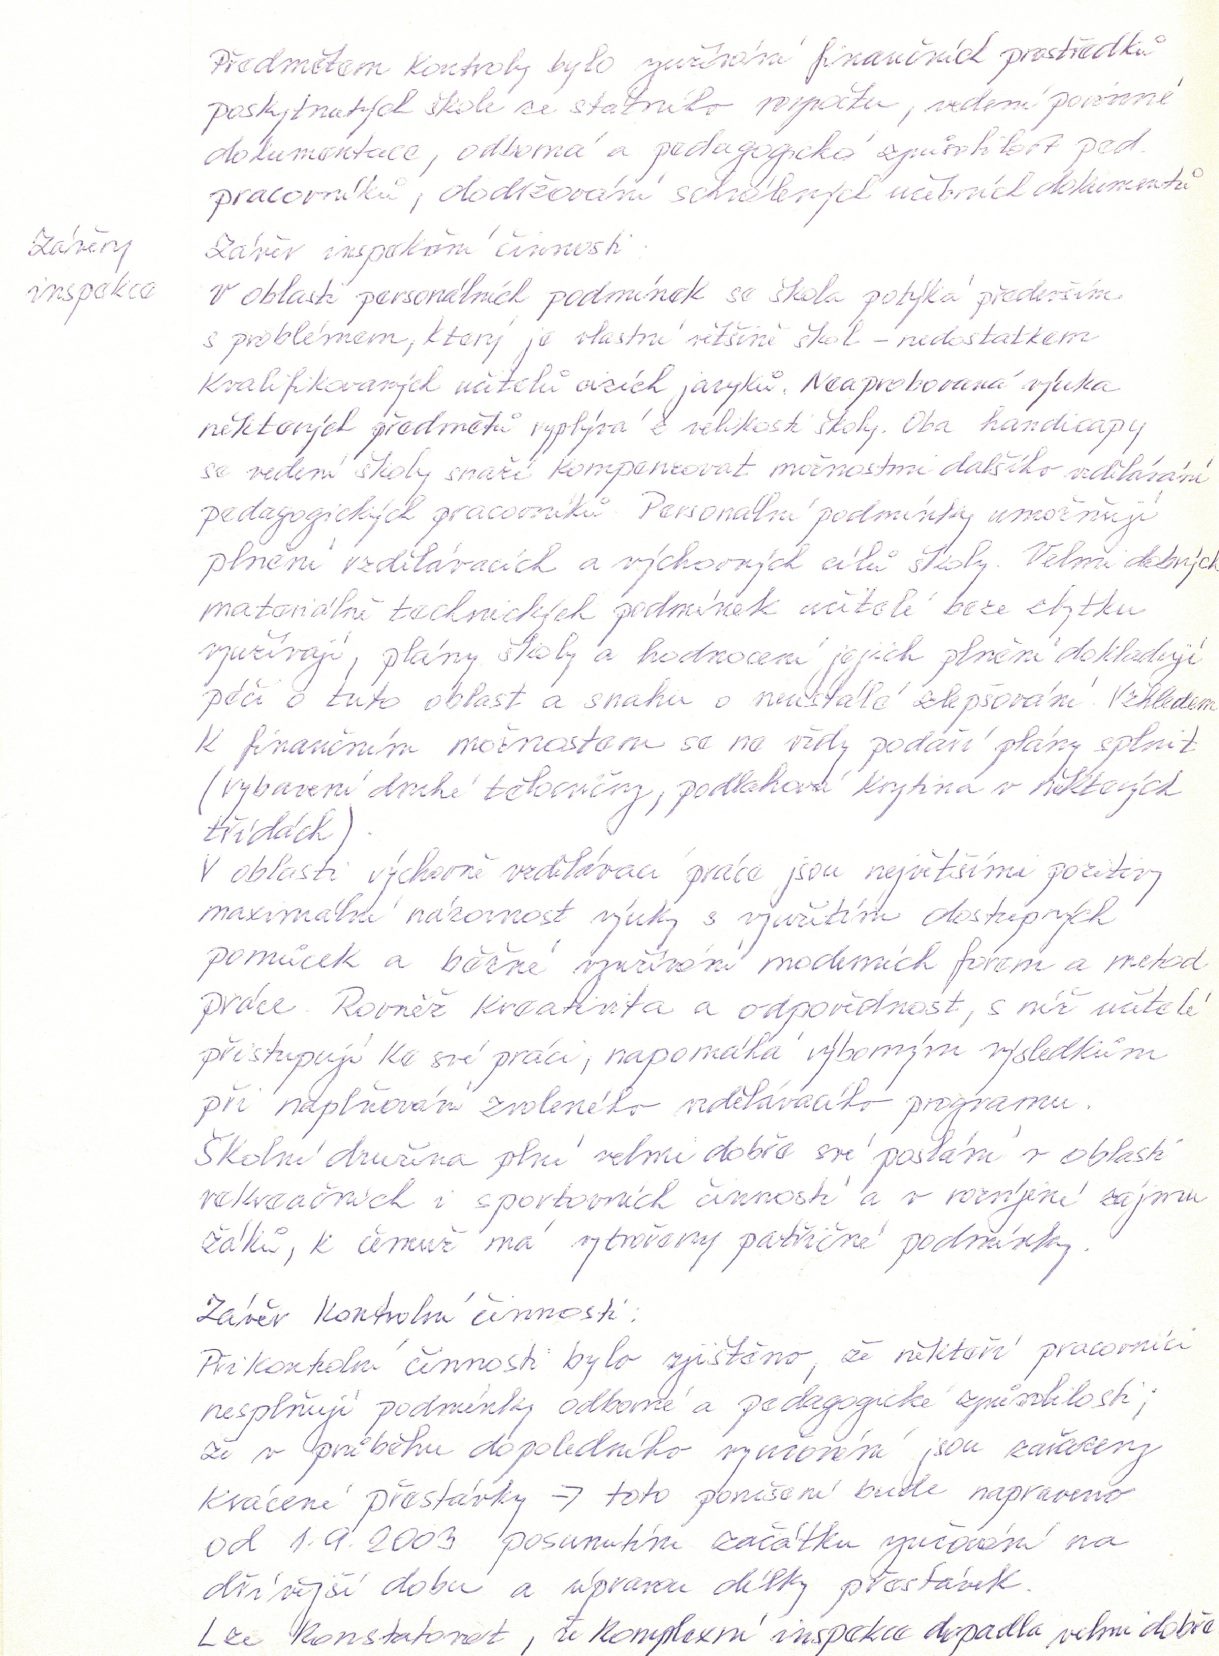 Předmětem kontroly bylo využívání finančních prostředků
poskytnutých škole ze státního rozpočtu, vedení povinné
dokumentace, odborná a pedagogická způsobilost ped.
pracovníků, dodržování schválených učebních dokumentů
Závěry
inspekce
Závěr inspekční činnosti:
V oblasti personálních podmínek se škola potýká především
s problémem, který je vlastní většině škol – nedostatkem
kvalifikovaných učitelů cizích jazyků. Neaprobovaná výuka
některých předmětů vyplývá z velikosti školy. Oba handicapy
se vedení školy snaží kompenzovat možnostmi dalšího vzdělávání
pedagogických pracovníků. Personální podmínky umožňují
plnění vzdělávacích a výchovných cílů školy. Velmi dobrých
materiálně technických podmínek učitelé beze zbytku
využívají, plány školy a hodnocení jejich plnění dokladují
péči o tuto oblast a snahu o neustálé zlepšování. Vzhledem
k finančním možnostem se ne vždy podaří plány splnit
(vybavení druhé tělocvičny, podlahová krytina v některých
třídách).
V oblasti výchovně vzdělávací práce jsou největšími pozitivy
maximální názornost výuky s využitím dostupných
pomůcek a běžné využívání moderních forem a metod
práce. Rovněž kreativita a odpovědnost, s níž učitelé
přistupují ke své práci, napomáhá výborným výsledkům
při naplňování zvoleného vzdělávacího programu.
Školní družina plní velmi dobře své poslání v oblasti
rekreačních i sportovních činností a v rozvíjení zájmu
žáků, k čemuž má vytvořeny patřičné podmínky.
Závěr kontrolní činnosti:
Při kontrolní činnosti bylo zjištěno, že někteří pracovníci
nesplňují podmínky odborné a pedagogické způsobilosti;
že v průběhu dopoledního vyučování jsou zařazeny
krácené přestávky → toto porušení bude napraveno
od 1.9.2003 posunutím začátku vyučování na
dřívější dobu a úpravou délky přestávek.
Lze konstatovat, že komplexní inspekce dopadla velmi dobře